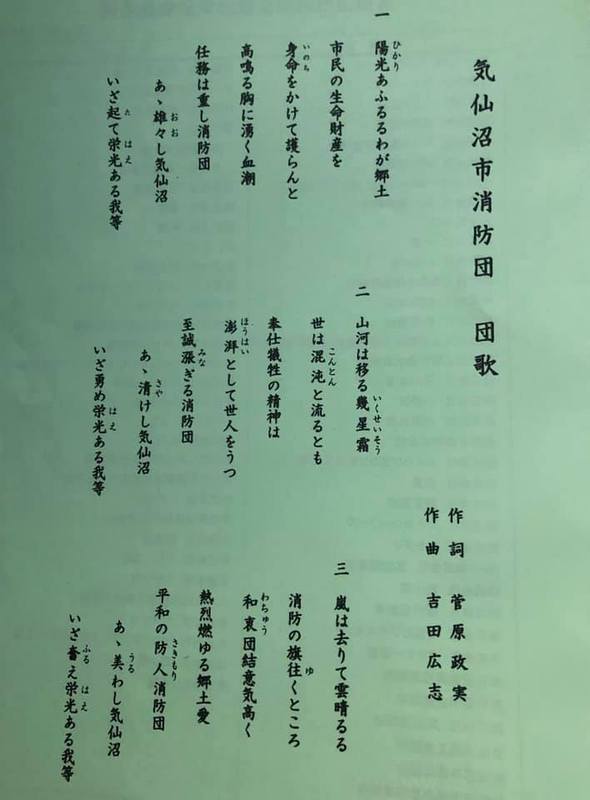 気仙沼市消防団　団歌
作詞　菅原政実
作曲　吉田広志
一
陽光あふるるわが郷土
ひかり
市民の生命財産を
身命をかけて護らんと
いのち
高鳴る胸に湧く血潮
任務は重し消防団
あゝ雄々し気仙沼
おお
いざ起て栄光ある我等
た　はえ
二
山河は移る幾星霜
いくせいそう
世は混沌と流るとも
こんとん
奉仕犠牲の精神は
澎湃として世人をうつ
ほうはい
至誠漲ぎる消防団
みな
あゝ清けし気仙沼
さや
いざ勇め栄光ある我等
はえ
三
嵐は去りて雲晴るる
消防の旗往くところ
ゆ
和衷団結意気高く
わちゅう
熱烈燃ゆる郷土愛
平和の防人消防団
さきもり
あゝ美わし気仙沼
うる
いざ奮え栄光ある我等
ふる　はえ